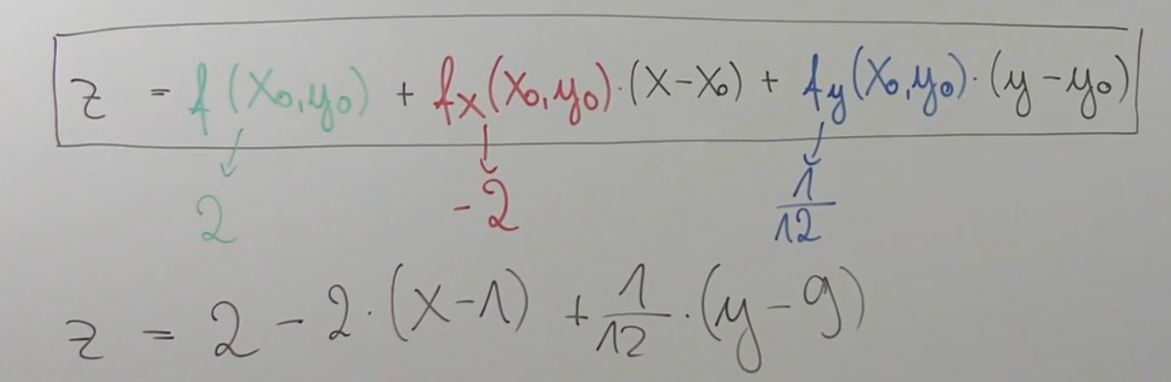 z = f(x₀,y₀) + fₓ(x₀,y₀)·(x-x₀) + f_y(x₀,y₀)·(y-y₀)
2 -2 1/12
z = 2 - 2·(x-1) + 1/12·(y-9)